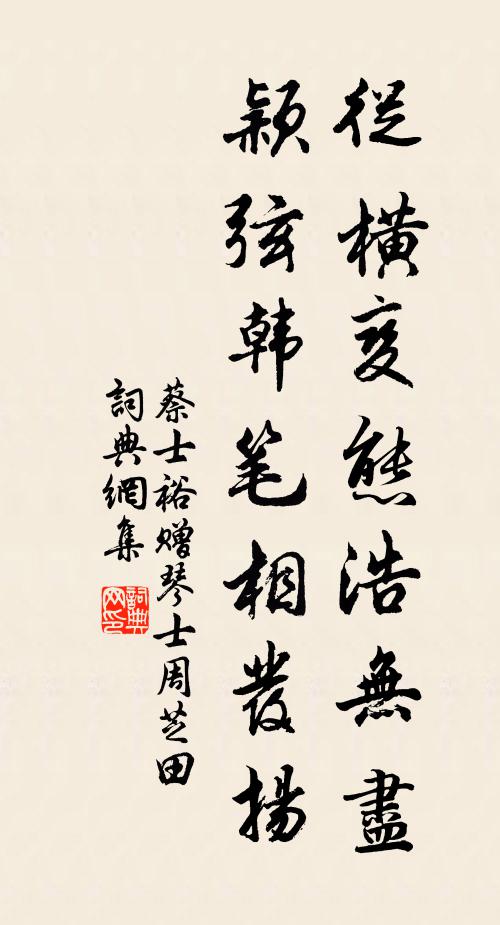 從橫变態浩無盡
穎弦韩笔相發揚
蔡士裕赠琴士周芝田
詞典網集
詞典网印